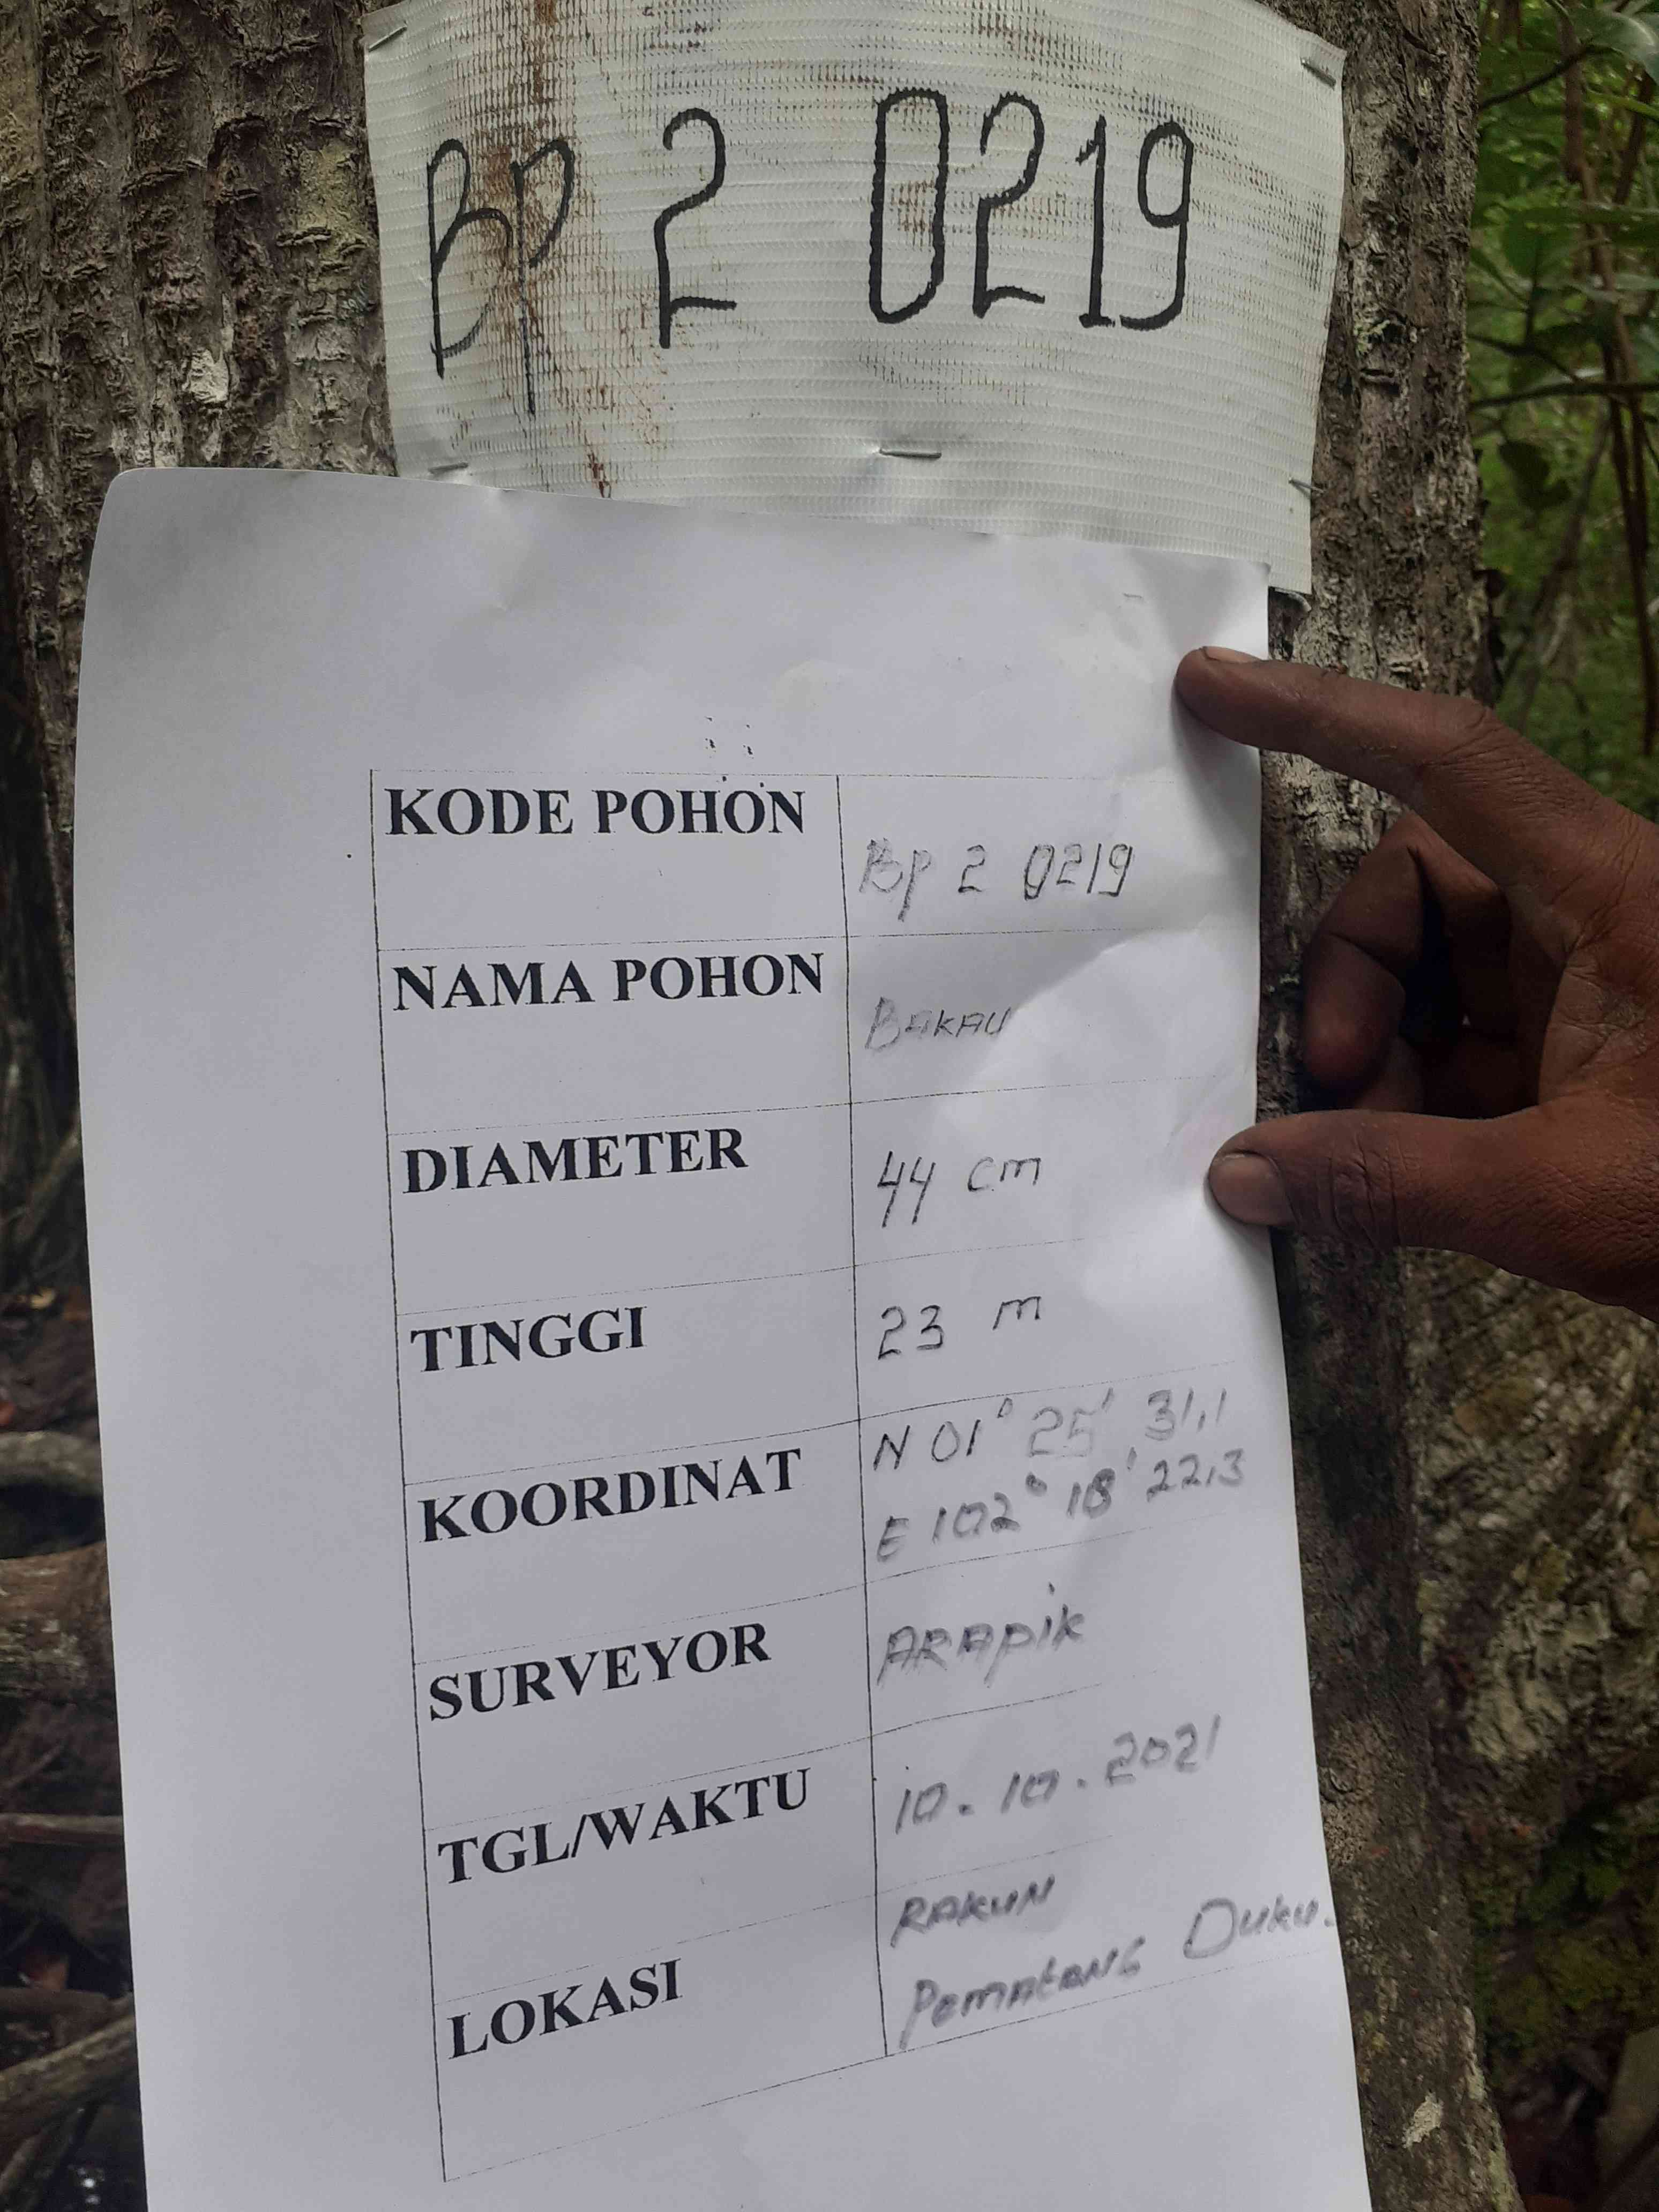 BP 2 0219
KODE POHON
BP 2 0219
NAMA POHON
BAKAU
DIAMETER
44 cm
TINGGI
23 m
KOORDINAT
N 01° 25' 31,1
E 102° 18' 22,3
SURVEYOR
ARApik
TGL/WAKTU
10.10.2021
LOKASI
RAKUN
PemAtANG Duku.